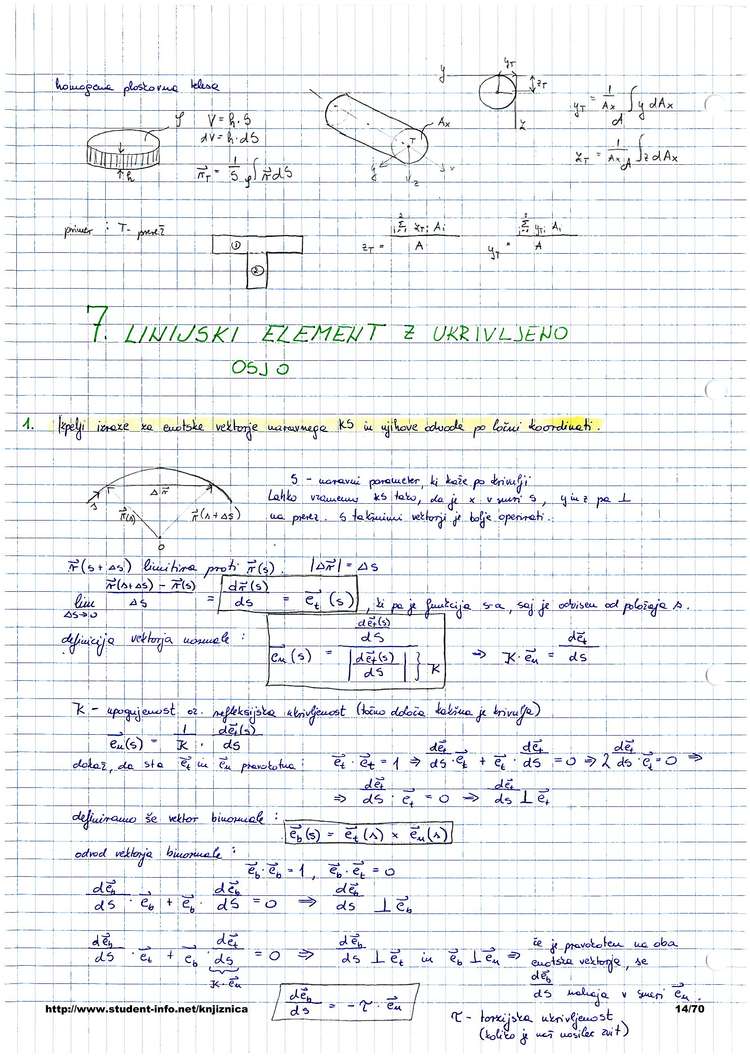 homogena ploskovna telesa
ρ V = h · S
dV = h · dS
h
r⃗_T = 1/S ∫_ρ r⃗ dS
A_x
T
y
z
x
y y_T
z_T
z
y_T = 1/A_x ∫_A y dA_x
z_T = 1/A_x ∫_A z dA_x
primer : T- prerez
①
②
z_T = Σ z_Ti A_i / A
y_T = Σ y_Ti A_i / A
7. LINIJSKI ELEMENT Z UKRIVLJENO
OSJO
1. Izpelji izraze za enotske vektorje naravnega KS in njihove odvode po ločni koordinati.
Δr⃗
s
r⃗(s) r⃗(s+Δs)
O
S - naravni parameter, ki kaže po krivulji
Lahko vzamemo KS tako, da je x v smeri s, y in z pa ⊥
na prerez. S takšnimi vektorji je bolje operirati.
r⃗(s+Δs) limitira proti r⃗(s). |Δr⃗| = Δs
lim_{Δs→0} (r⃗(s+Δs) - r⃗(s))/Δs = dr⃗(s)/ds = e⃗_t(s), ki pa je funkcija s-a, saj je odvisen od položaja s.
definicija vektorja normale : e⃗_n(s) = (de⃗_t(s)/ds) / |de⃗_t(s)/ds| } K ⇒ K·e⃗_n = de⃗_t/ds
K - upogujenost oz. refleksijska ukrivljenost (točno določa kakšna je krivulja)
e⃗_n(s) = 1/K · de⃗_t(s)/ds
dokaz, da sta e⃗_t in e⃗_n pravokotna : e⃗_t · e⃗_t = 1 ⇒ de⃗_t/ds · e⃗_t + e⃗_t · de⃗_t/ds = 0 ⇒ 2 de⃗_t/ds · e⃗_t = 0 ⇒
⇒ de⃗_t/ds · e⃗_t = 0 ⇒ de⃗_t/ds ⊥ e⃗_t
definiramo še vektor binormale : e⃗_b(s) = e⃗_t(s) × e⃗_n(s)
odvod vektorja binormale :
e⃗_b · e⃗_b = 1, e⃗_b · e⃗_t = 0
de⃗_b/ds · e⃗_b + e⃗_b · de⃗_b/ds = 0 ⇒ de⃗_b/ds ⊥ e⃗_b
de⃗_b/ds · e⃗_t + e⃗_b · de⃗_t/ds = 0 ⇒ de⃗_b/ds ⊥ e⃗_t in e⃗_b ⊥ e⃗_n ⇒
K·e⃗_n
če je pravokoten na oba
enotska vektorja, se
de⃗_b/ds nahaja v smeri e⃗_n.
de⃗_b/ds = -τ · e⃗_n
τ - torzijska ukrivljenost
(koliko je naš nosilec zvit)
http://www.student-info.net/knjiznica
14/70